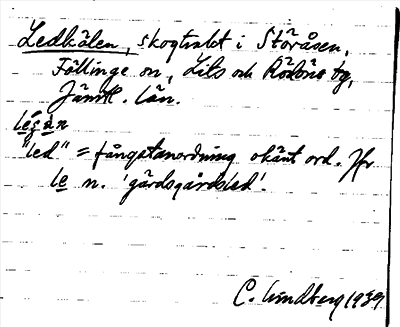 Ledkälen, skogtrakt i Störåsen,
Föllinge sn, Lits och Rödöns tg,
Jämtl. län.
"led" = fångstanordning okänt ord. Jfr
le n. 'gärdsgårdsled'.
C. Lindberg 1939